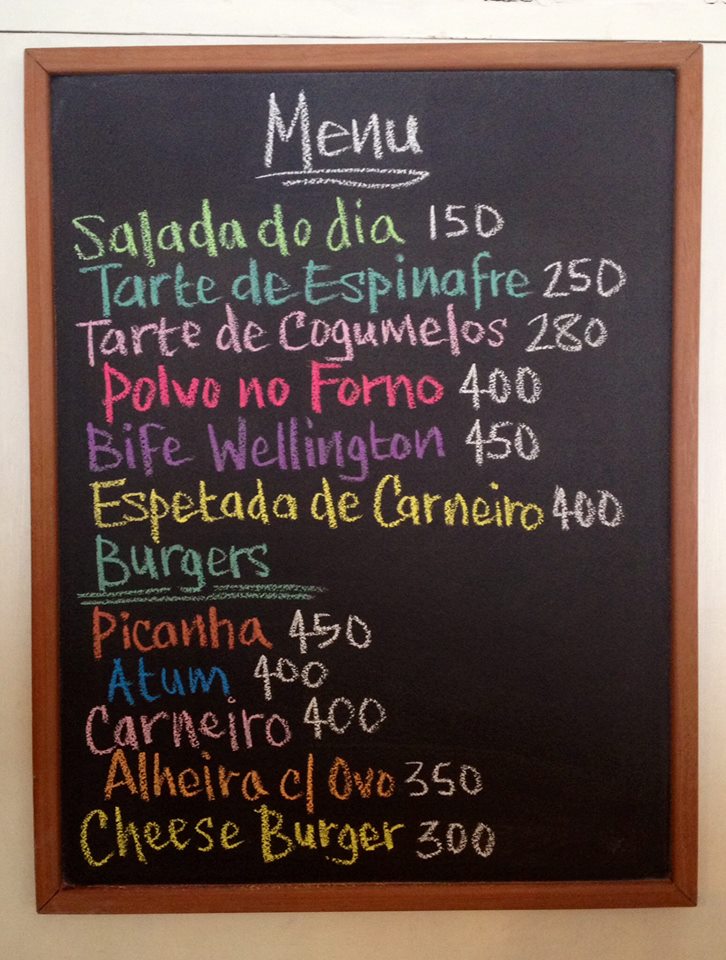 Menu
Salada do dia 150
Tarte de Espinafre 250
Tarte de Cogumelos 280
Polvo no Forno 400
Bife Wellington 450
Espetada de Carneiro 400
Burgers
Picanha 450
Atum 400
Carneiro 400
Alheira c/ Ovo 350
Cheese Burger 300